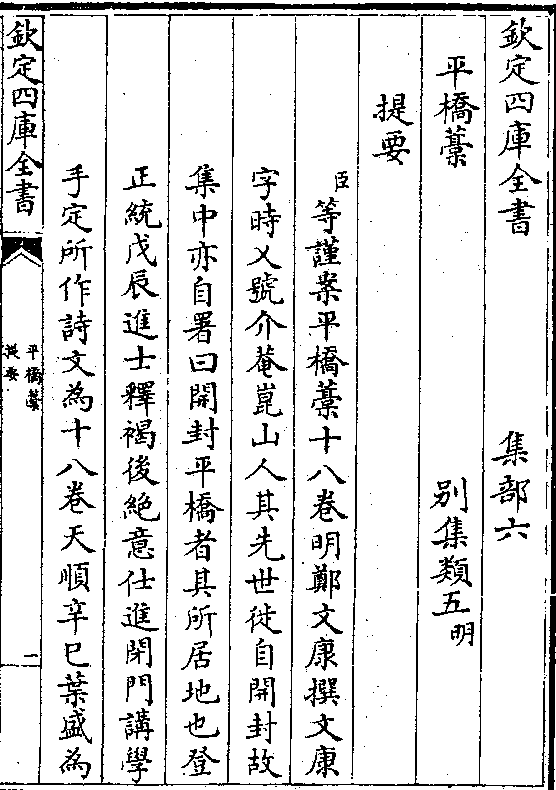 欽定四庫全書　集部六
平橋藳　別集類五明
提要
臣等謹案平橋藳十八卷明鄭文康撰文康
字時乂號介菴崑山人其先世徙自開封故
集中亦自署曰開封平橋者其所居地也登
正統戊辰進士釋褐後絶意仕進閉門講學
手定所作詩文為十八卷天順辛巳葉盛為
欽定四庫全書
平橋藳
提要
一